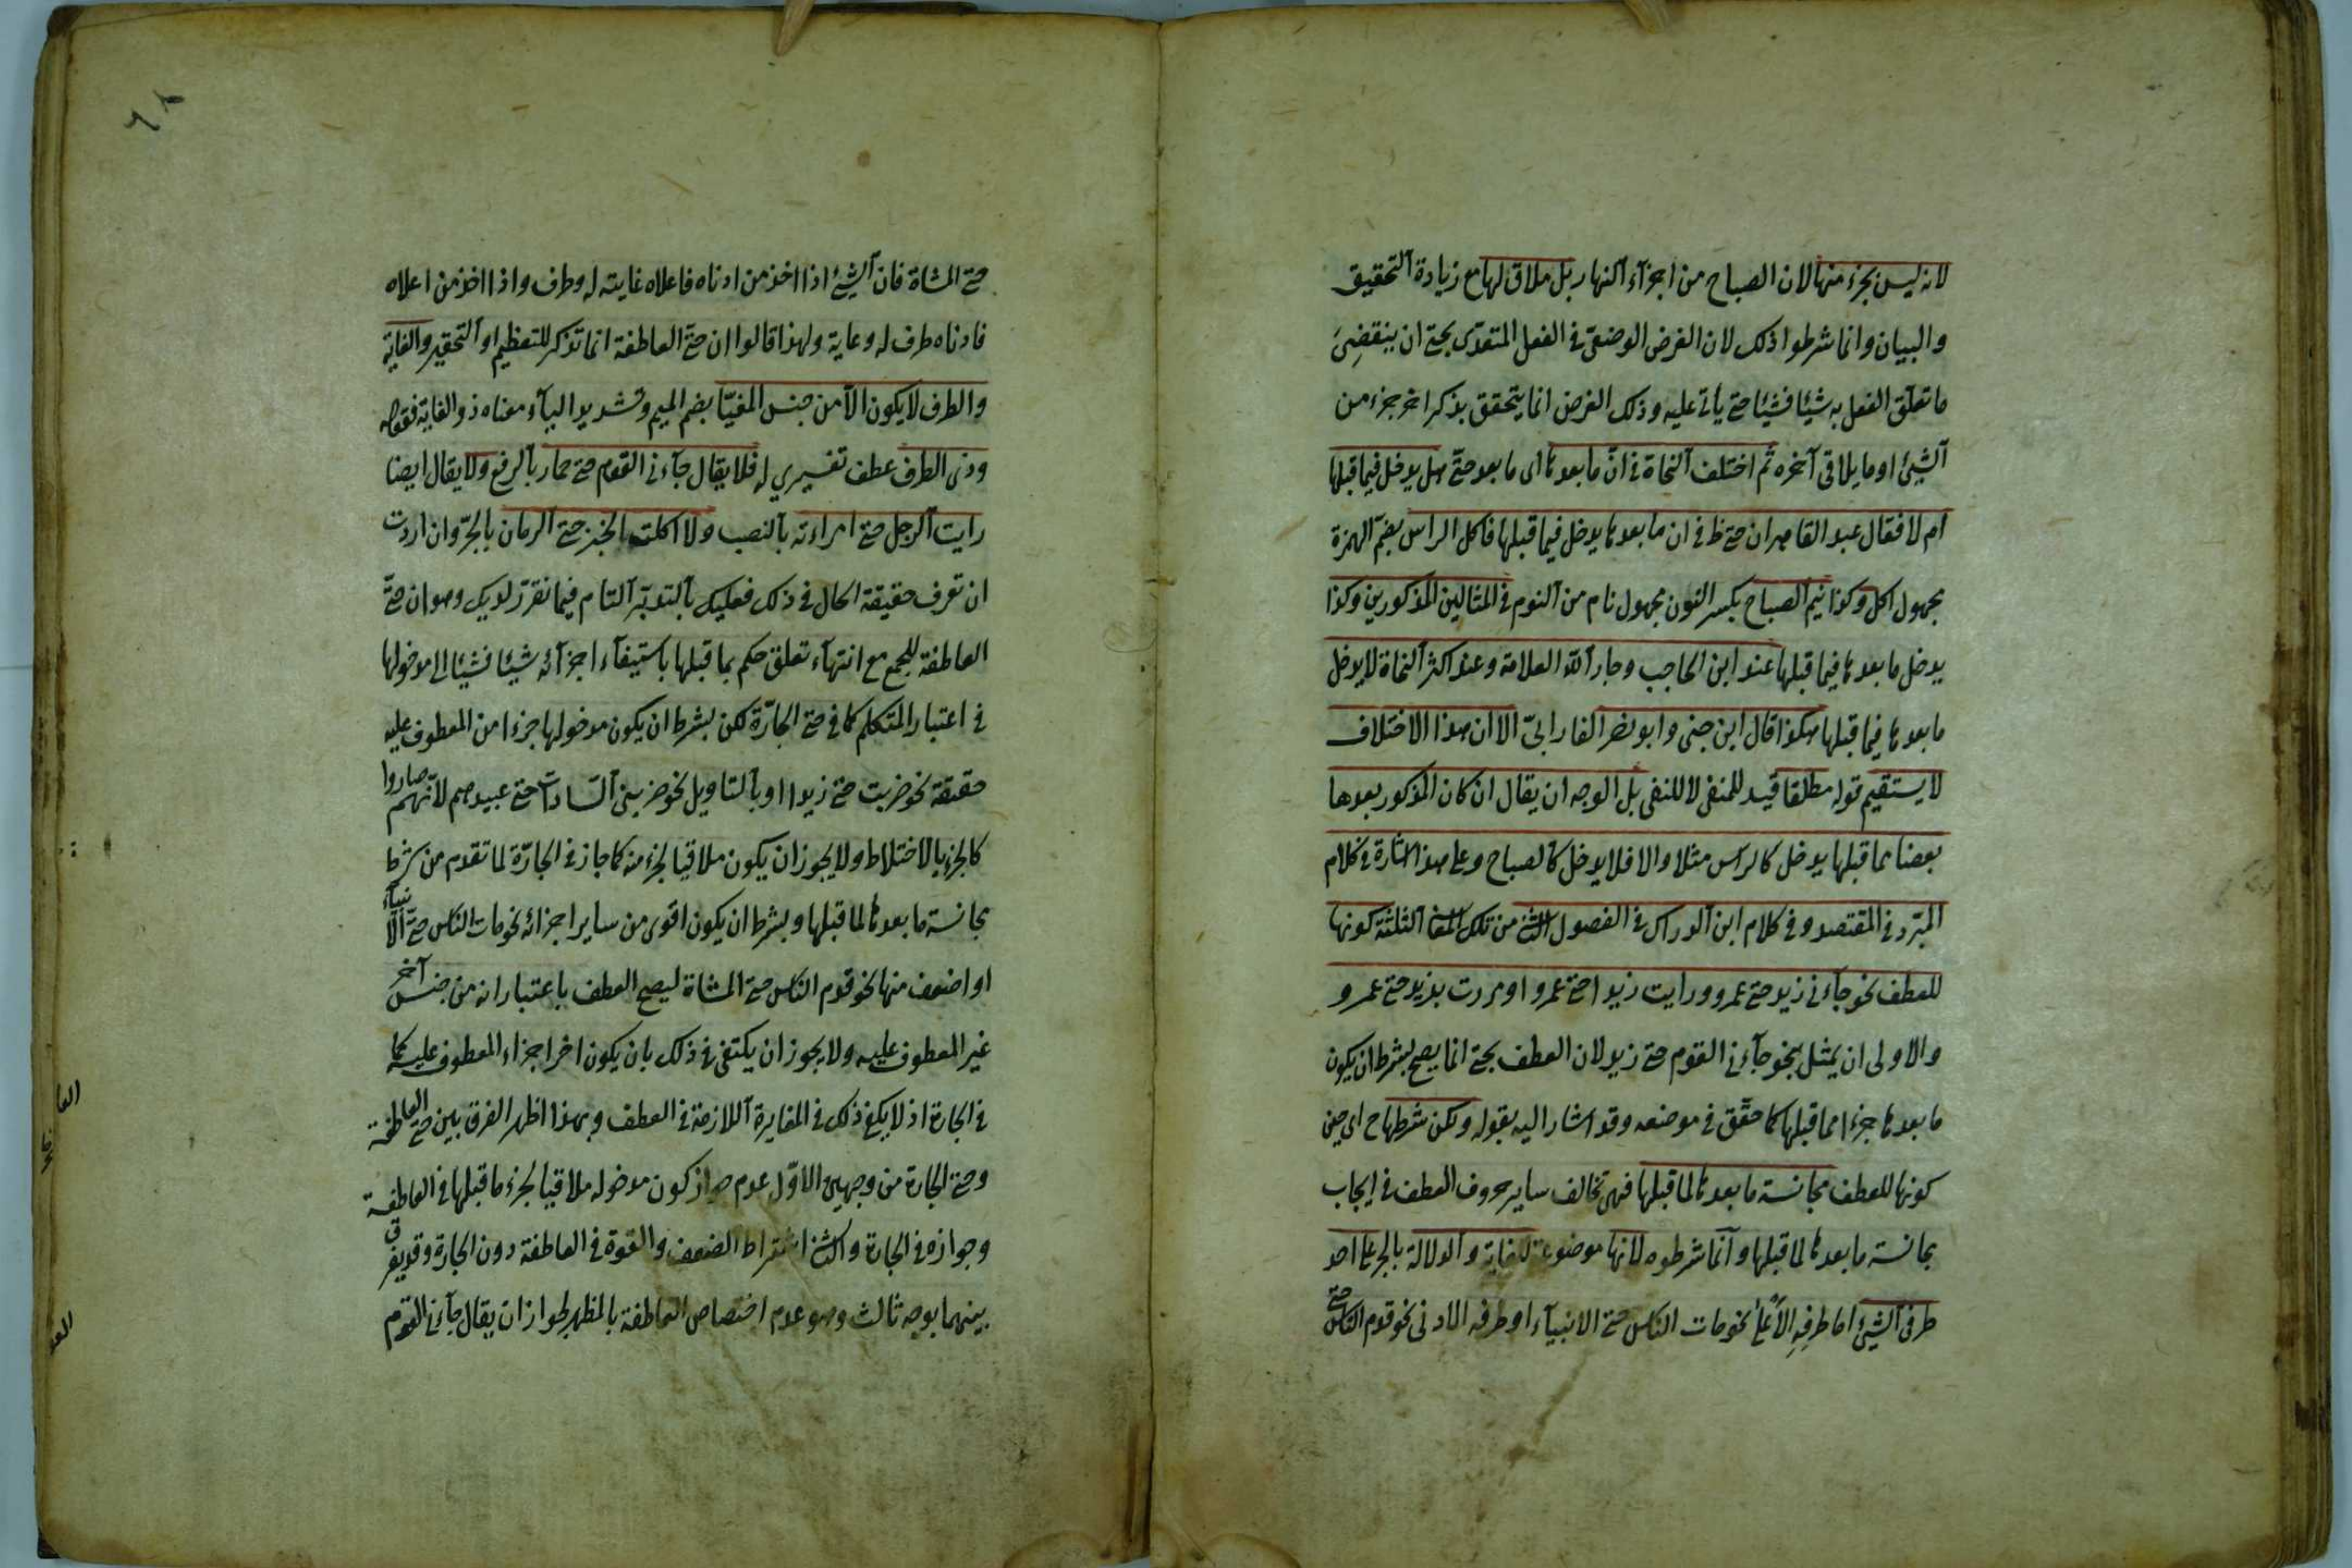 لانه ليس بجزء منها لان الصباح من اجزآء النهار بل ملاق لها مع زيادة التحقيق
والبيان وانما شرطوا ذلك لان الغرض الوضعىّ فى الفعل المتعدّى بحتى ان ينقضِىَ
ما تعلّق الفعل به شيئا فشيئا حتى يأتى عليه وذلك الغرض انما يتحقق بذكر اخر جزء من
الشيئ او ما يلاقى آخره ثم اختلف النحاة فى انّ ما بعدها اى ما بعد حتىّ هل يدخل فيما قبلها
ام لا فقال عبد القاهر ان حتى فى ان ما بعدها يدخل فيما قبلها فاكل الراس بضمّ الهمزة
مجهول اكل وكذا نيم الصباح بكسر النون مجهول نام من النوم فى المثالين المذكورين وكذا
يدخل ما بعدها فيما قبلها عند ابن الحاجب وجار الله العلامة وعند اكثر النحاة لا يدخل
ما بعدها فيما قبلها هكذا قال ابن جنى وابو نصر الفارابىّ الا ان هذا الاختلاف
لا يستقيم قوله مطلقا قيد للمنفى لا للنفى بل الوجه ان يقال ان كان المذكور بعدها
بعضا مما قبلها يدخل كالراس مثلا والا فلا يدخل كالصباح وعلى هذا اشارة فى كلام
المبّرد فى المقتصد وفى كلام ابن الدراك فى الفصول الثانى من تلك المعانى الثلثة كونها
للعطف نحو جآءنى زيد حتى عمرو ورايت زيدا حتى عمروا ومررت بزيد حتى عمرو
والاولى ان يمثل بنحو جآءنى القوم حتى زيد لان العطف بحتى انما يصح بشرط ان يكون
ما بعدها جزءا مما قبلها كما حقّق فى موضعه وقد اشار اليه بقوله ولكن شرطها ح اى حين
كونها للعطف مجانسة ما بعدها لما قبلها فهى تخالف ساير حروف العطف فى ايجاب
مجانسة ما بعدها لما قبلها وانّما شرطوه لانها موضوعة للغاية والدلالة بالجر على احد
طرفى الشيئ اما طرفِهِ الاَعْلى نحو مات الناس حتى الانبيآء او طرفه الادنى نحو قدم الناس حتى
حتى المشاة فان الشيئ اذا اخذ من ادناه فاعلاه غايته له وطرف واذا اخذ من اعلاه
فادناه طرف له وغاية ولهذا قالوا ان حتى العاطفة انما تذكر للتعظيم او التحقير والغاية
والطرف لا يكون الاّ من جنس المغيّا بضم الميم وتشديد اليآء معناه ذو الغاية فقوله
وذى الطرف عطف تفسيري له فلا يقال جآءنى القوم حتى حمار بالرفع ولا يقال ايضا
رايت الرجل حتى امراءته بالنصب ولا اكلت الخبز حتى الرمان بالجرّ وان اردت
ان تعرف حقيقة الحال فى ذلك فعليك بالتدبّر التام فيما نقرّر لديك وهو ان حتىّ
العاطفة للجمع مع انتهآء تعلق حكم بما قبلها باستيفآء اجزآئه شيئا فشيئا الى مدخولها
فى اعتبار المتكلم كما فى حتى الجارّة لكن بشرط ان يكون مدخولها جزءا من المعطوف عليه
حقيقة نحو ضربت حتى زيدا او بالتاويل نحو ضربنى السّادات حتى عبيدهم لانّهم صاروا
كالجزء بالاختلاط ولا يجوز ان يكون ملاقيا لجزء منه كما جاز فى الجارّة لما تقدم من شرط
مجانسة ما بعدها لما قبلها وبشرط ان يكون اقوى من ساير اجزائه نحو مات الناس حتىّ الانبيآء
او اضعف منها نحو قدم الناس حتى المشاة ليصح العطف باعتبار انه من جنس آخر
غير المعطوف عليه ولا يجوز ان يكتفى فى ذلك بان يكون اخر اجزاء المعطوف عليه كما
فى الجارة اذ لا يكفى ذلك فى المغايرة اللازمة فى العطف وبهذا اظهر الفرق بين حتى العاطفة
وحتى الجارة من وجهين الاوّل عدم جواز كون مدخوله ملاقيا لجزء ما قبلها فى العاطفة
وجوازه فى الجارة والثانى اشتراط الضعف والقوة فى العاطفة دون الجارة وقد يفرق
بينهما بوجه ثالث وهو عدم اختصاص العاطفة بالمظهر لجواز ان يقال جآءنى القوم